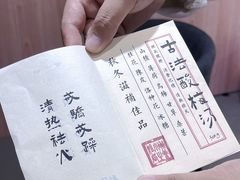 古法酸梅汤
山楂 乌梅 甘草 桑葚
桂花 陈皮 洛神花 冰糖
秋冬滋補佳品
戒驕戒躁
清热祛火